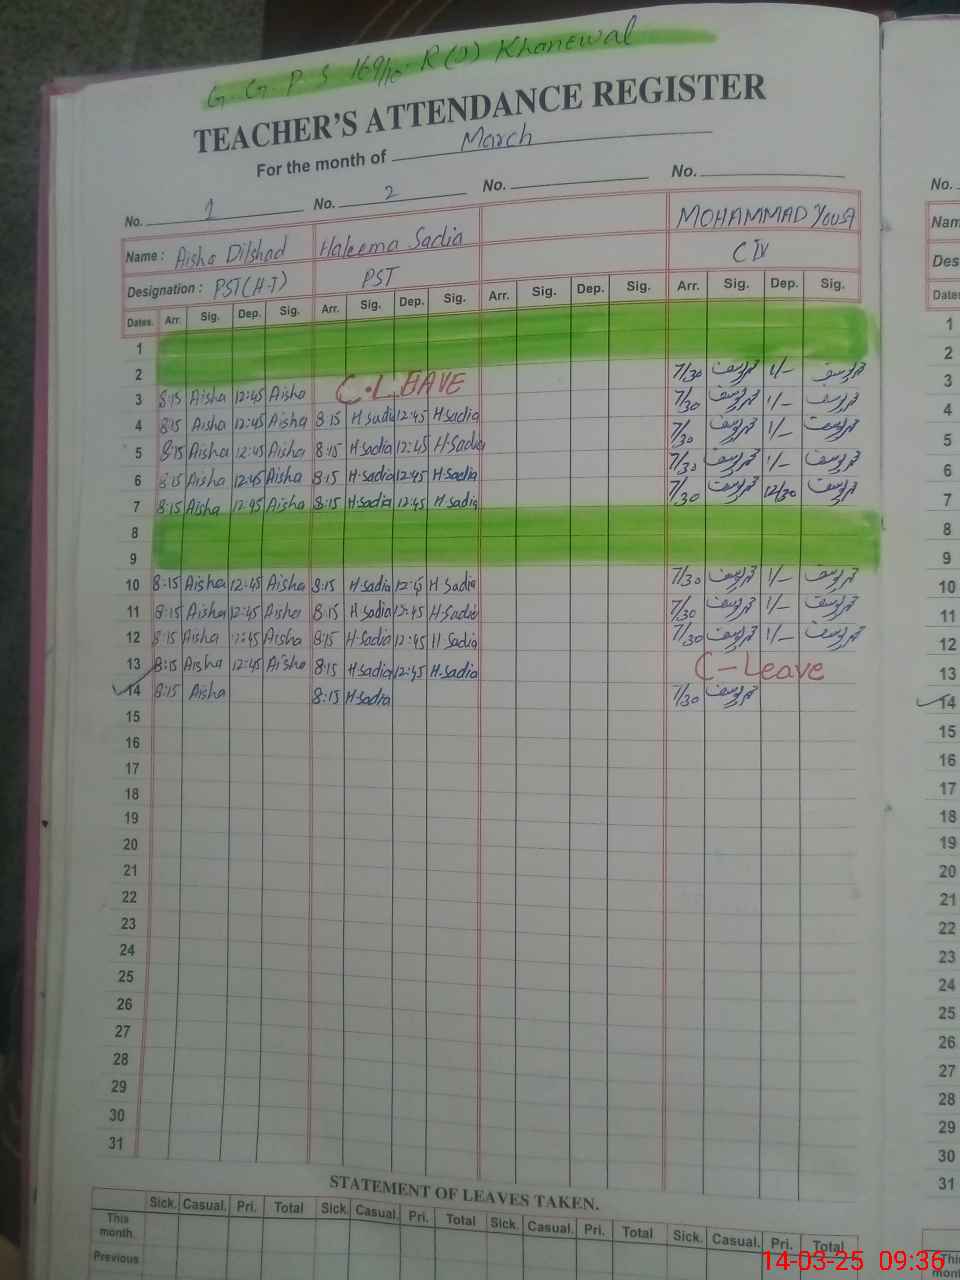 G.G.P.S 169/10-R(J) Khanewal
TEACHER'S ATTENDANCE REGISTER
For the month of March
No. 1 No. 2 No. No.
Name : Aisha Dilshad Haleema Sadia MOHAMMAD YOUSA
Designation : PST(H-T) PST C IV
Dates. Arr. Sig. Dep. Sig. Arr. Sig. Dep. Sig. Arr. Sig. Dep. Sig. Arr. Sig. Dep. Sig.
1
2
3 8:15 Aisha 12:45 Aisha C.LEAVE 7/30 محمد یوسف 1/- محمد یوسف
4 8:15 Aisha 12:45 Aisha 8:15 H sadia 12:45 H.sadia 7/30 محمد یوسف 1/- محمد یوسف
5 8:15 Aisha 12:45 Aisha 8:15 H.sadia 12:45 H.Sadia 7/30 محمد یوسف 1/- محمد یوسف
6 8:15 Aisha 12:45 Aisha 8:15 H.sadia 12:45 H.sadia 7/30 محمد یوسف 1/- محمد یوسف
7 8:15 Aisha 12:45 Aisha 8:15 H.sadia 12:45 H.sadia 7/30 محمد یوسف 12/30 محمد یوسف
8
9
10 8:15 Aisha 12:45 Aisha 8:15 H.sadia 12:45 H.Sadia 7/30 محمد یوسف 1/- محمد یوسف
11 8:15 Aisha 12:45 Aisha 8:15 H.sadia 12:45 H.Sadia 7/30 محمد یوسف 1/- محمد یوسف
12 8:15 Aisha 12:45 Aisha 8:15 H.Sadia 12:45 H.Sadia 7/30 محمد یوسف 1/- محمد یوسف
13 8:15 Aisha 12:45 Aisha 8:15 H.sadia 12:45 H.sadia C-Leave
14 8:15 Aisha 8:15 H.sadia 7/30 محمد یوسف
15
16
17
18
19
20
21
22
23
24
25
26
27
28
29
30
31
STATEMENT OF LEAVES TAKEN.
Sick. Casual. Pri. Total Sick. Casual. Pri. Total Sick. Casual. Pri. Total Sick. Casual. Pri. Total
This month.
Previous
No.
Dates
1
2
3
4
5
6
7
8
9
10
11
12
13
14
15
16
17
18
19
20
21
22
23
24
25
26
27
28
29
30
31
14-03-25 09:36